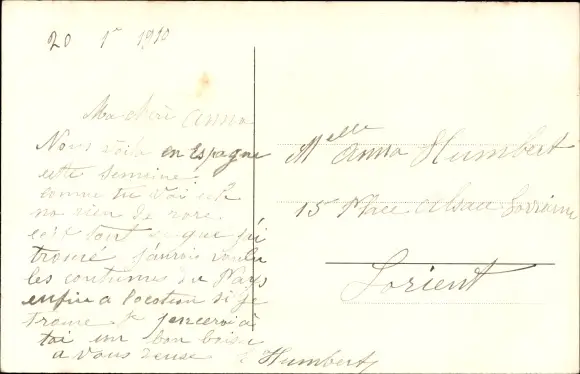 20 1er 1910
Ma chère Anna
Nous voila en Espagne
cette semaine
comme tu voi
na rien de rare
c'est tout se que j'ai
trouvé j'aurois voulu
les coutumes du Pays
enfin a l'occation si je
trouve je pencerai à
toi un bon baiser
a vous deuse
Humbert
Melle Anna Humbert
15 Place Alsace Lorraine
Lorient